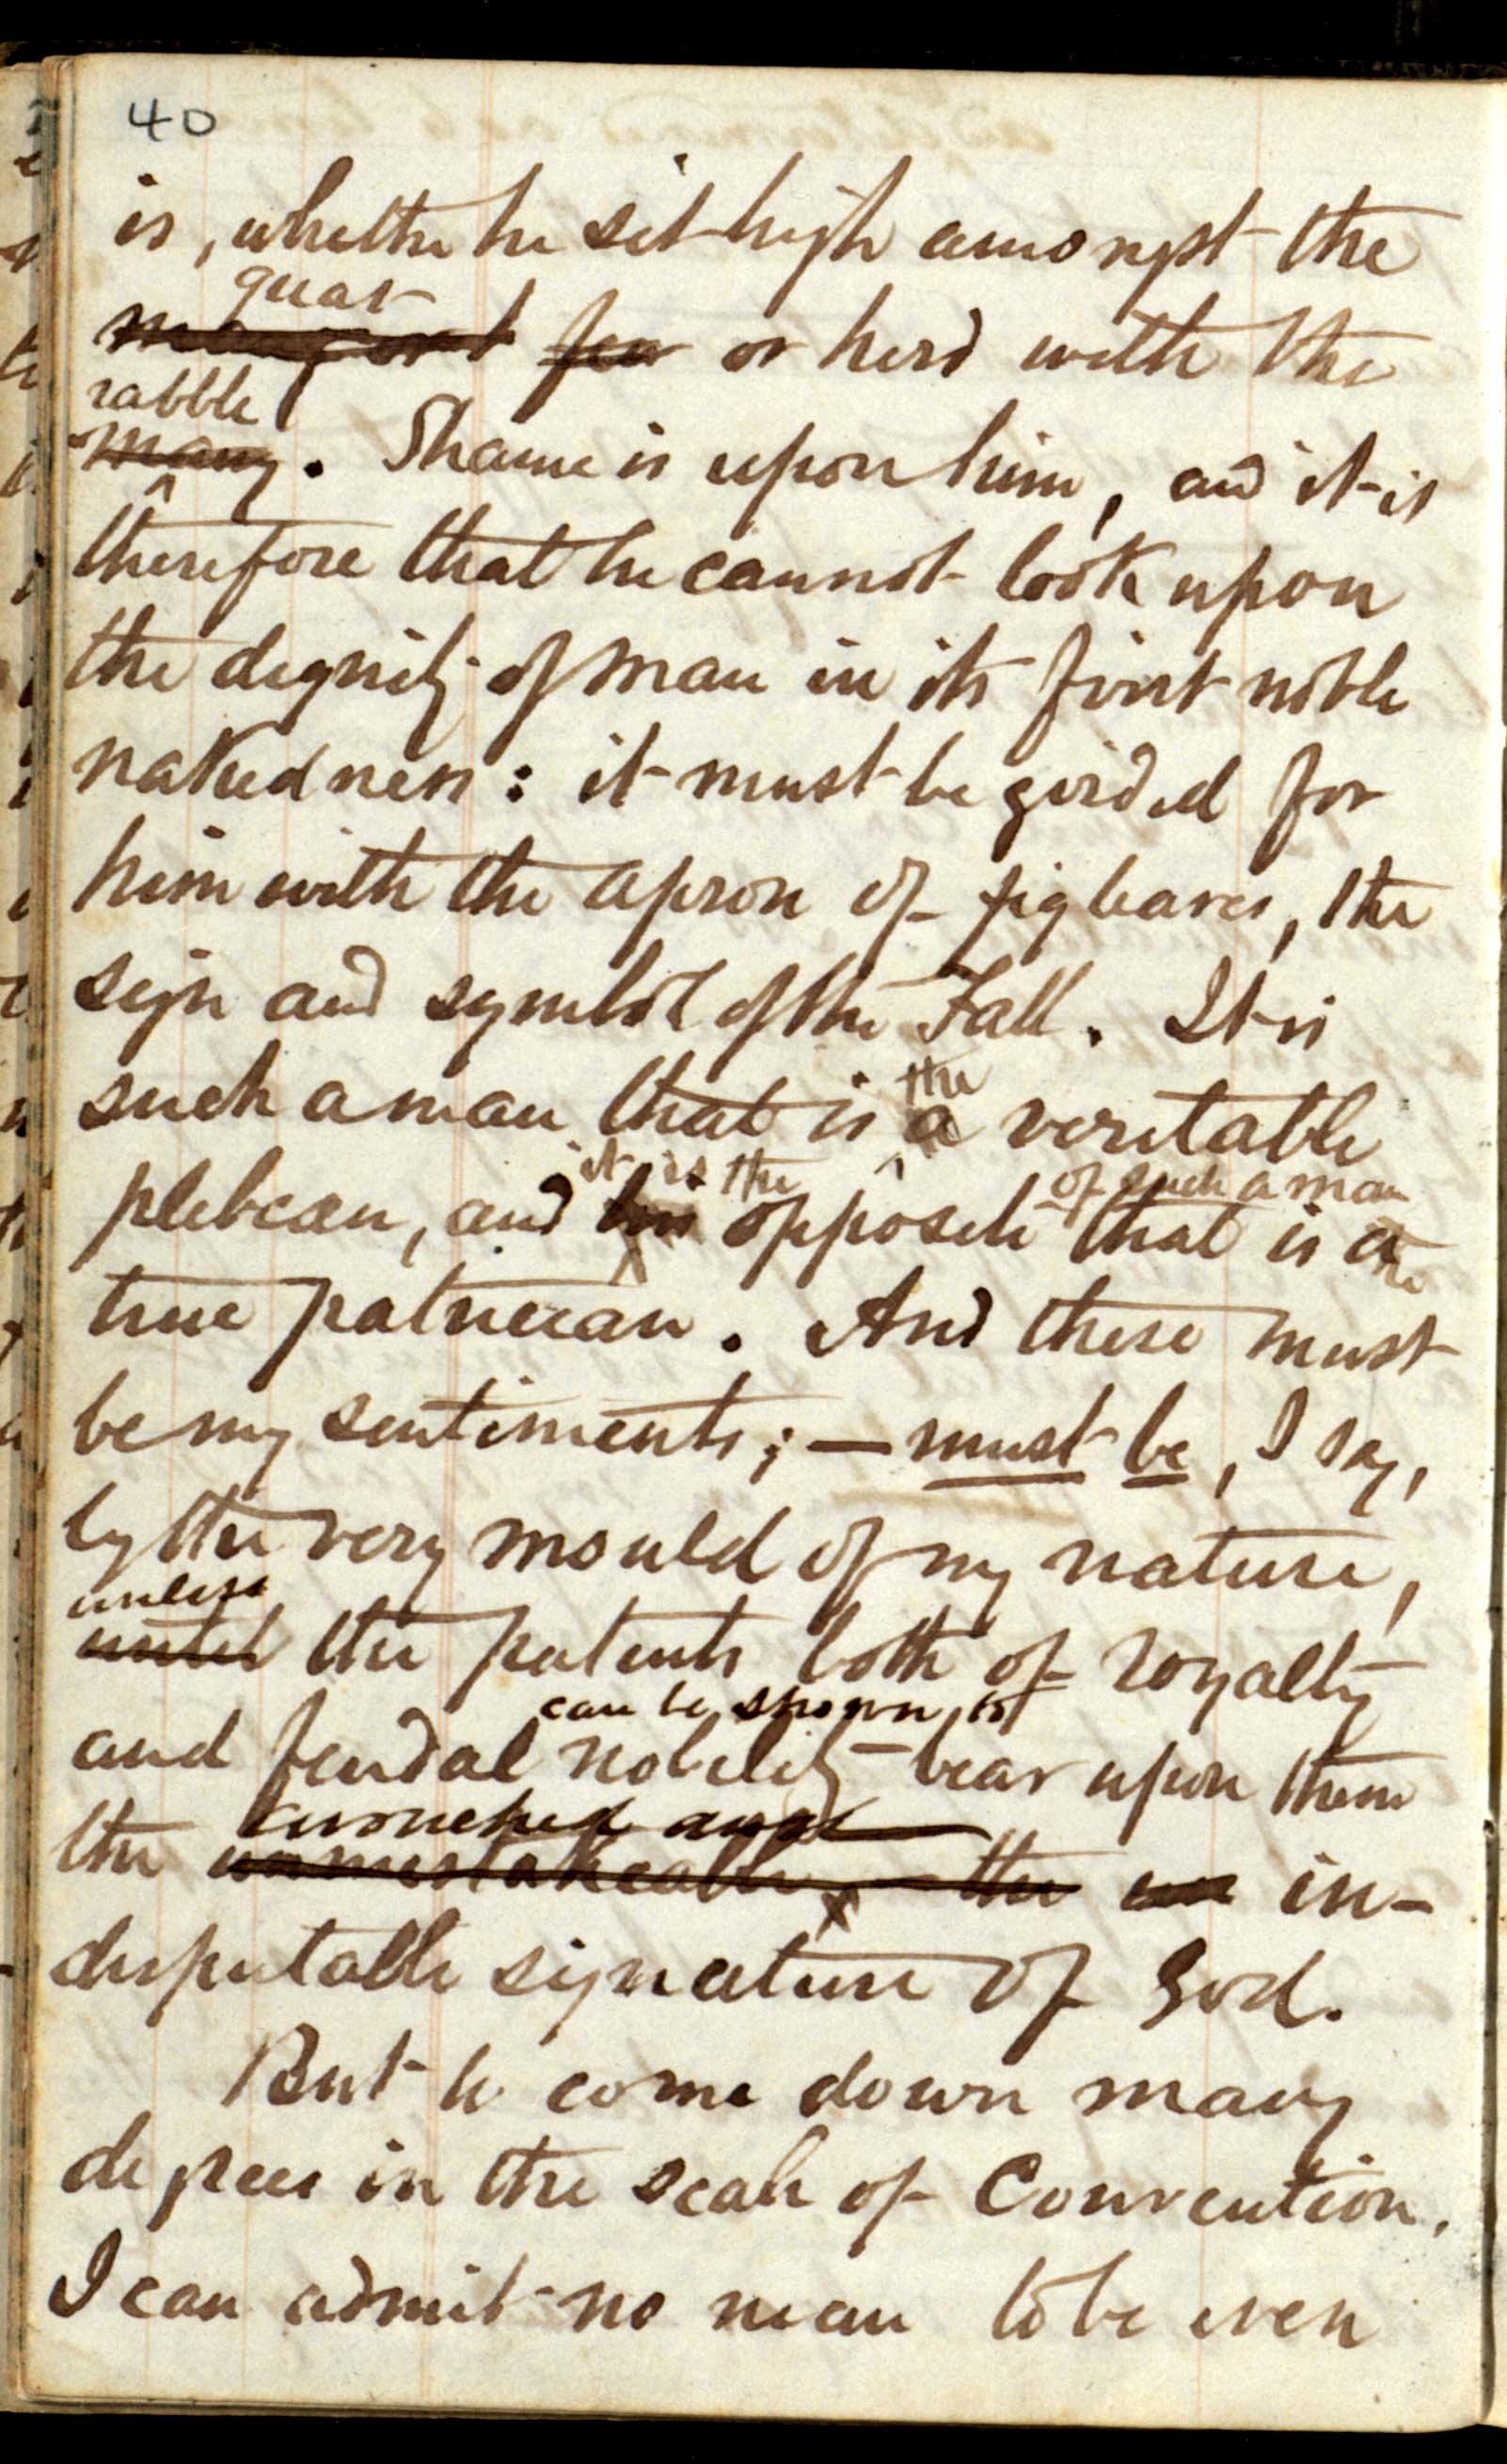 40
is, whether he sit high amongst the
great
few or herd with the
rabble
many. Shame is upon him, and it is
therefore that he cannot look upon
the dignity of man in its first noble
nakedness: it must be girded for
him with the apron of fig leaves, the
sign and symbol of the Fall. It is
the
such a man that is a veritable
it is the of such a man
plebean, and his opposite that is a the
true patrician. And these must
be my sentiments; — must be, I say,
by the very mould of my nature,
unless
until the patents both of royalty
can be shown to
and feudal nobility bear upon them
and
the unmistakeable, the un in-
disputable signature of God.
But to come down many
degrees in the scale of Convention,
I can admit no man to be even